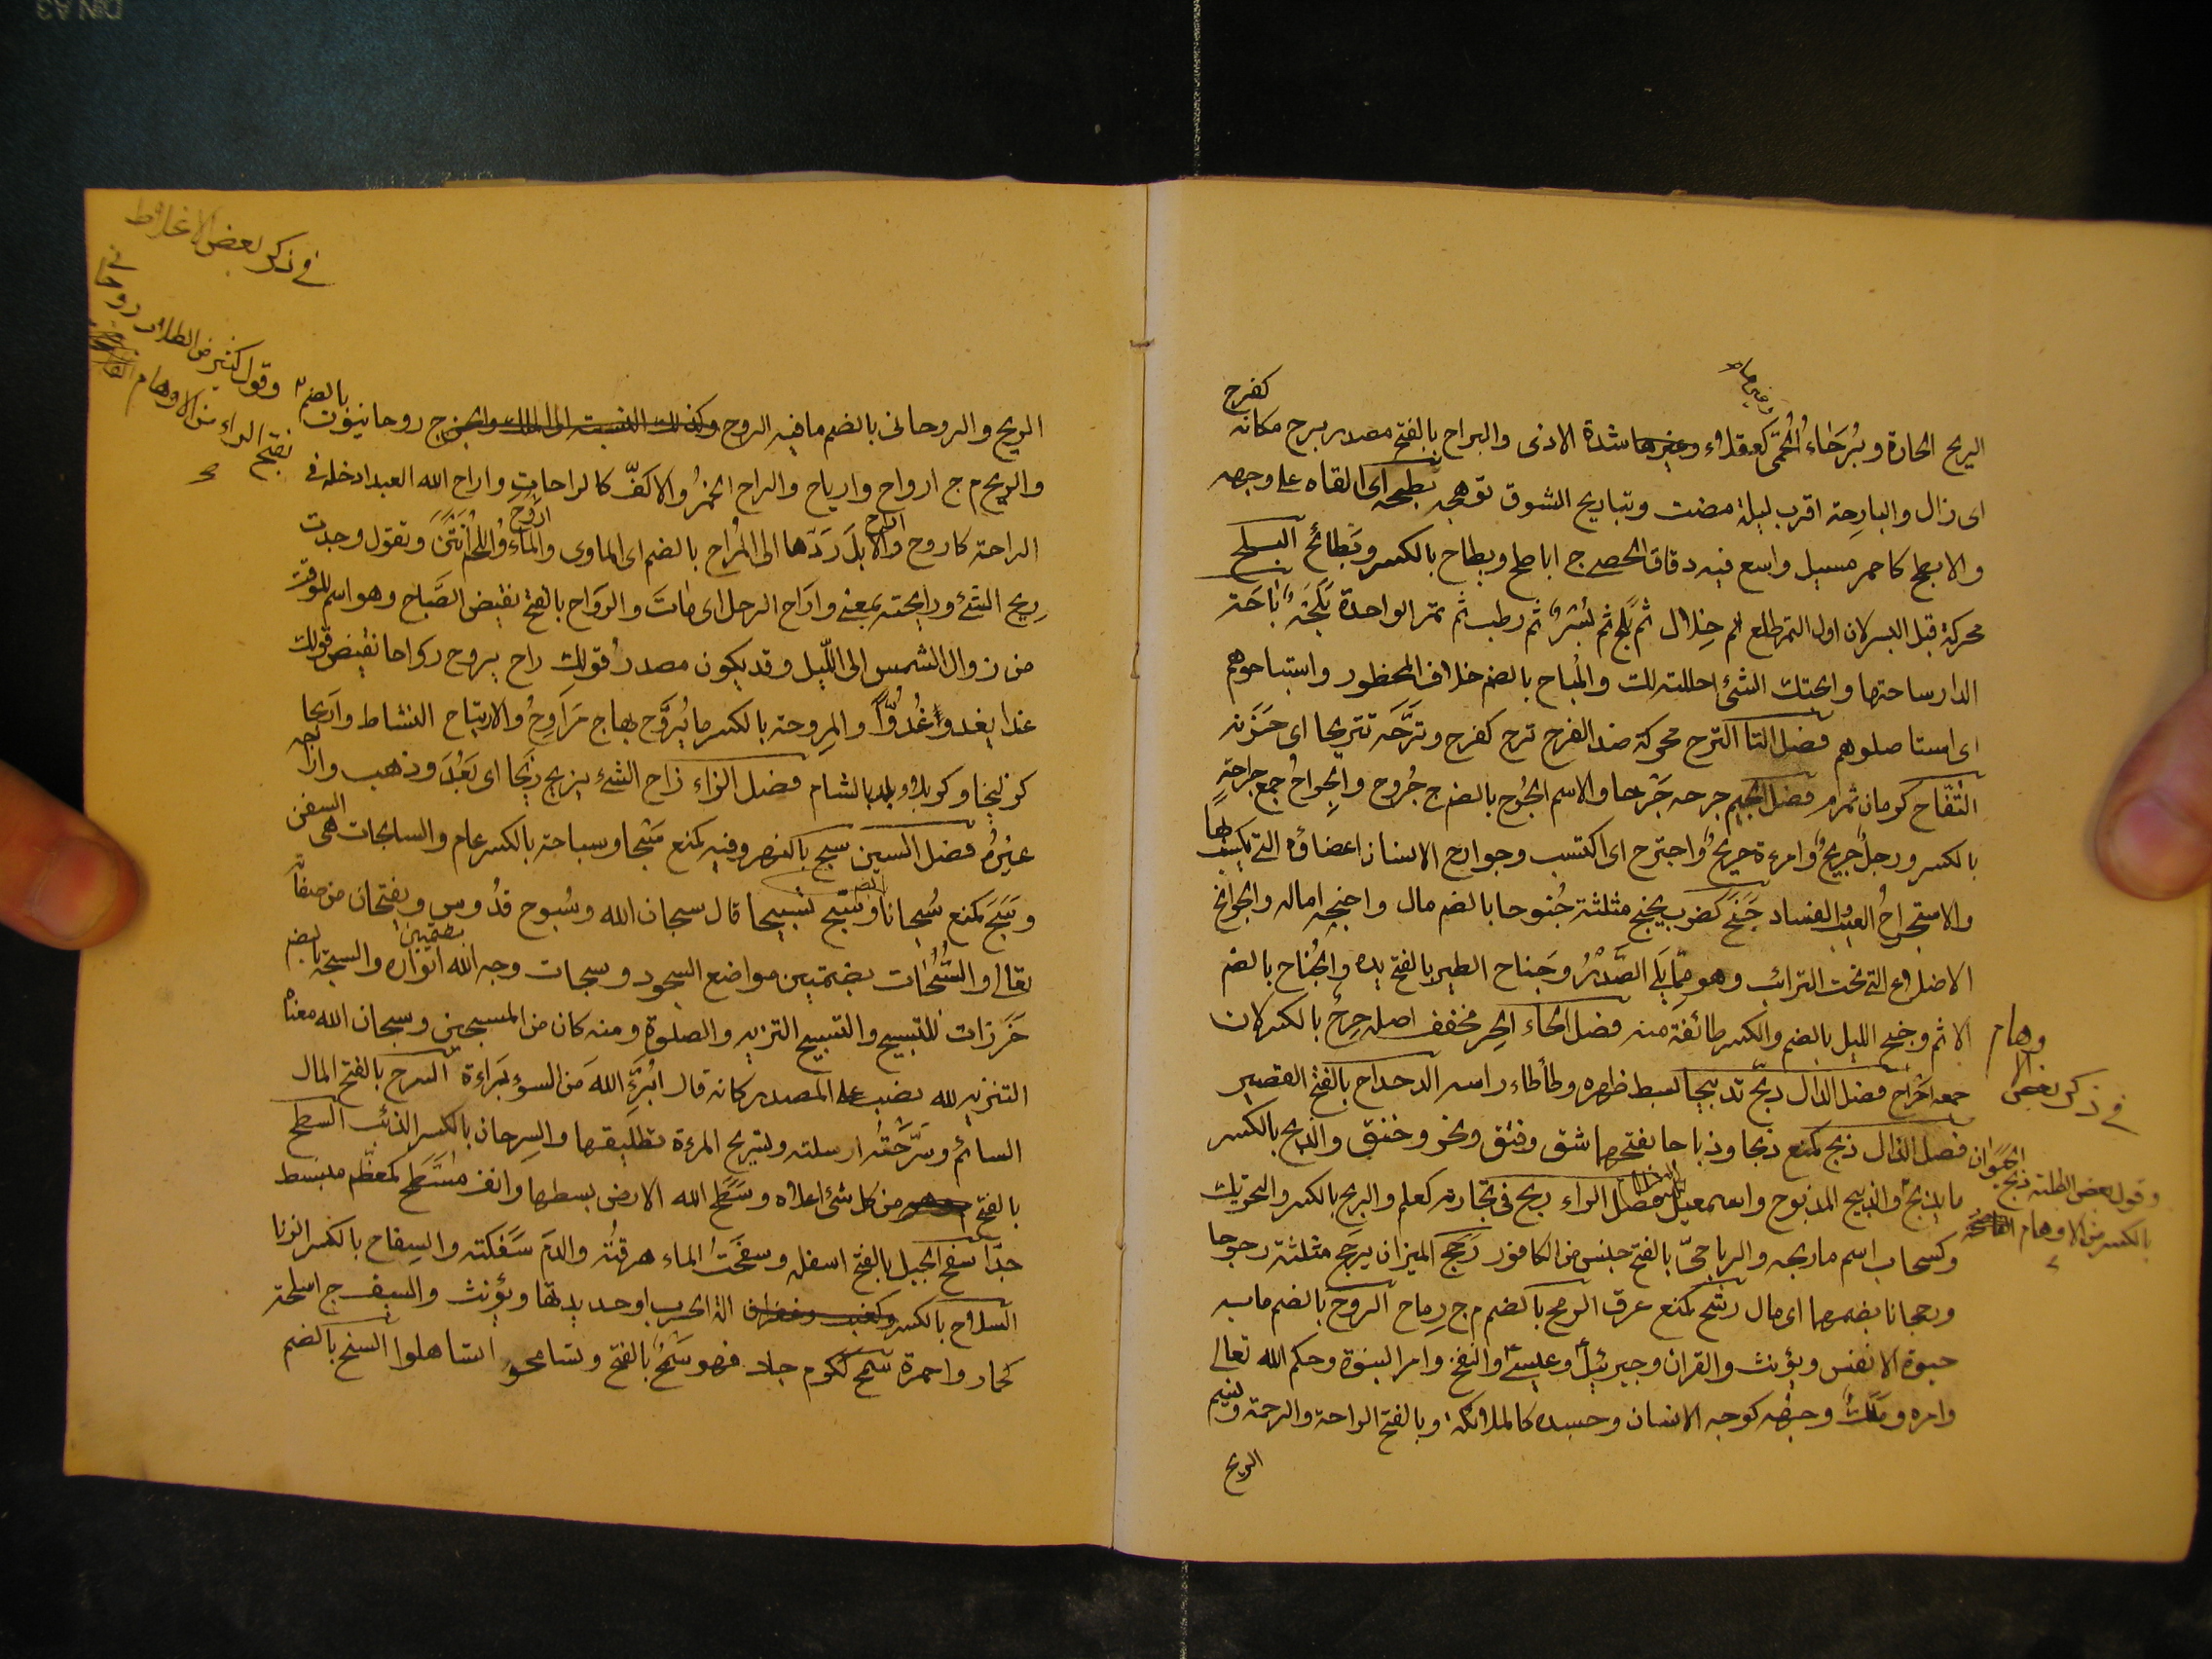 كفرح
وغيرها
الريح الحارة وبُرَحَاءُ الحُمَّى كعقلاء وغيرها شدة الاذى والبراح بالفتح مصدر برح مكانه
اى زال والبارحة اقرب ليلة مضت وتباريح الشوق توهجه بطحه اى القاه على وجهه
والابطح كاحمر مسيل واسع فيه دقاق الحصى ج اباطح وبطاح بالكسر وبَطائح البلح
محركة قبل البسر لان اول التمر طلع ثم خِلال ثم بَلَح ثم بُسْرٌ ثم رطب ثم تمر الواحدة بَلَحَةٌ بَاحَة
الدار ساحتها وابحتك الشئ احللته لك والمُباح بالضم خلاف المحظور واستباحوهم
اى استاصلوهم فصل التا الترح محركة ضد الفرح ترح كفرح وتَرَّحَه تتريحا اى حَزَنه
التُفّاح كرمان ثمر م فصل الجيم جرحه جَرْحا والاسم الجُرْح بالضم ج جُروح والجِراحُ جمع جِراحةٍ
بالكسر ورجلٌ جريحٌ وامرءة جريحٌ واجترح اى اكتسب وجوارح الانسان اعضاؤه التى يكتسب بها
والاستجراحُ العيب والفساد جَنَحَ كضرب يجنح مثلثة جُنوحا بالضم مال واجنحه اماله والجوانح
الاضلاع التى تحت الترائب وهو مِمّا يَلى الصَّدْرُ وجَناح الطير بالفتح يده والجُناح بالضم
الاثم وجنح الليل بالضم والكسر طائفة منه فصل الحاء الحِر مخفف اصله حِرْحٌ بالكسر لان
جمعه احْرَاح فصل الدال دبّح تدبيحا بسط ظهره وطأطاء راسه الدحداح بالفتح القصير
فصل الذال ذبح كمنع ذبحا وذباحا بفتحهما شق وفتق ونحر وخنق والذبح بالكسر
ما يذبحُ والذبيح المذبوح واسمعيل فصل الراء ربح فى تجارته كعلم والربح بالكسر والتحريك
وكسحاب اسم ما ربحه والرباحىّ بالفتح جنس من الكافور رَجَحَ الميزان يرجح مثلثة رجوحا
ورجحانا بضمهما اى مال رشح كمنع عرق الرمح بالضم م ج رِماح الروح بالضم ما به
حيوة الانفس ويؤنث والقران وجبرئيل وعيسى والنفخ وامر النبوة وحكم الله تعالى
وامره ومَلَكٌ وجهُه كوجه الانسان وجسده كالملائكة وبالفتح الراحة والرحمة ونسيم
الريح
فى ذكر بعض الاوهام
وقول بعض الطلبة ذبح الحَيَوان
بالكسر من الاوهام
فى ذكر بعض الاغلاط
وقول كثير من الطلاب روحانى
بفتح الراء من الاوهام
بالضم
الريح والروحانى بالضم ما فيه الروح وكذلك النسبة الى الملك والجن ج روحانيون
والريح م ج ارواح وارياح والراح الخمرُ والاكفّ كالراحات واراح الله العبد ادخله فى
الراحة كاروح والابلَ رَدّها الى المُراح بالضم اى الماوى والماءُ واللحمُ اَنْتَنَ وتقول وجدت
رِيح الشئ ورايحته بمعنى واراح الرجل اى مات والرَواح بالفتح نقيض الصَّباح وهو اسم للوقت
من زوال الشمس الى اللّيل وقد يكون مصدرُ قولك راح يروح رواحا نقيض قولك
غدا يغدو غُدُوّاً والمِروحة بالكسر ما يُرَوَّح بها ج مَرَاوِحُ والارتياح النشاط واَريحا
كزليخا وكربلاء بلد بالشام فصل الزاء زاح الشئ يزيح زَيحا اى بَعُدَ وذهب وازاحه
غيرُه فصل السين سبح بالنهر وفيه كمنع سَبْحا وسباحة بالكسر عام والسابحات هى السفن
وسَبَحَ كمنع سُبحانا وسَبّح تسبيحا قال سبحان الله وسُبوح قدُّوس ويفتحان من صفاته
تعالى والسُّبُحات بضمتين مواضع السجود وسبحات وجه الله انواره والسبحة بالضم
خَرَزات للتسبيح والتسبيح التنزيه والصلوة ومنه كان من المسبحين وسبحان الله معناه
التنزيه لله نصب على المصدر كانه قال اُبْرِئُ اللهَ من السوء بَراءة السرح بالفتح المال
السائم وسَرَّحْتُه ارسلته وتسريح المرءة تطليقها والسِرحان بالكسر الذئب السطح
بالفتح من كل شئ اعلاه وسَطَح الله الارض بسطها وانف مُسَطَّح كمعظّم منبسط
جدّا سفح الجبل بالفتح اسفله وسفحتُ الماء هرقتُه والدمَ سَفكته والسِفاح بالكسر الزنا
السلاح بالكسر الة الحرب او حديدتها ويؤنث والسيف ج اسلحة
كحمار واحمرة سمح ككرم جاد فهو سَمْحٌ بالفتح وتسامحوا تساهلوا السنح بالضم